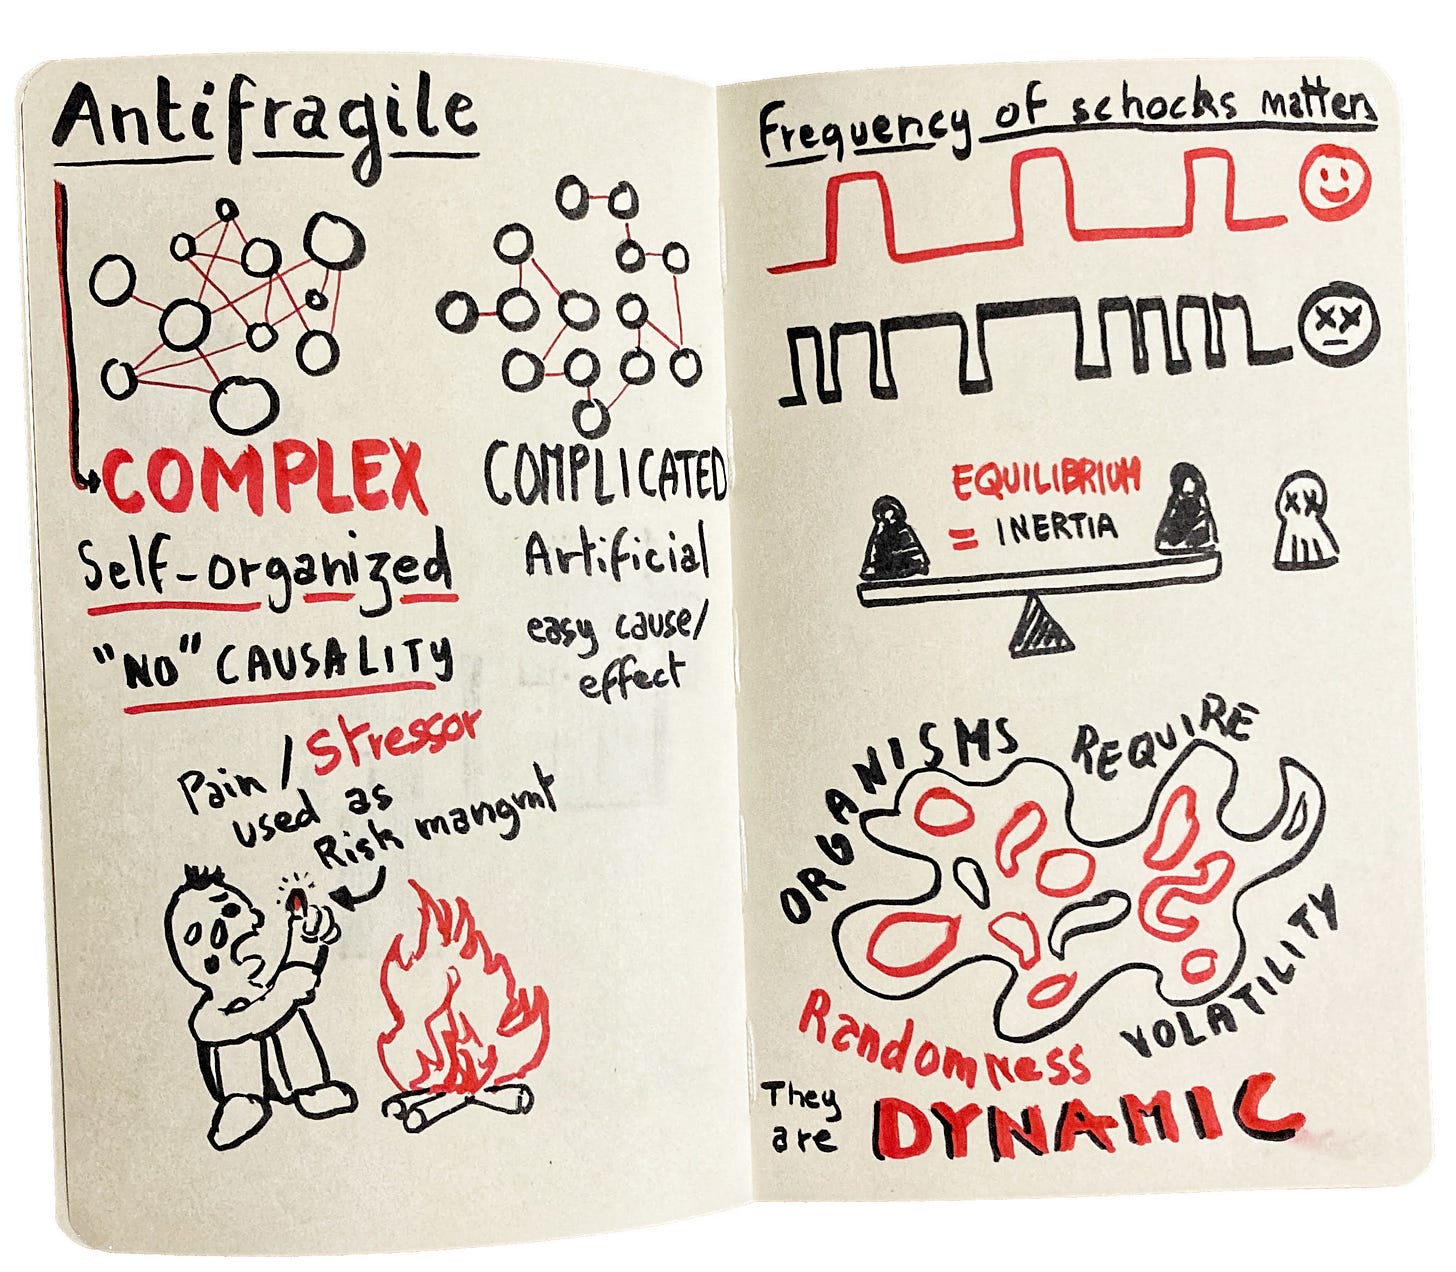 Antifragile
COMPLEX
Self-organized
"NO" CAUSALITY
COMPLICATED
Artificial
easy cause/
effect
Pain / Stressor
used as
Risk mangmt
Frequency of schocks matters
EQUILIBRIUM
= INERTIA
ORGANISMS REQUIRE
VOLATILITY
Randomness
They
are DYNAMIC